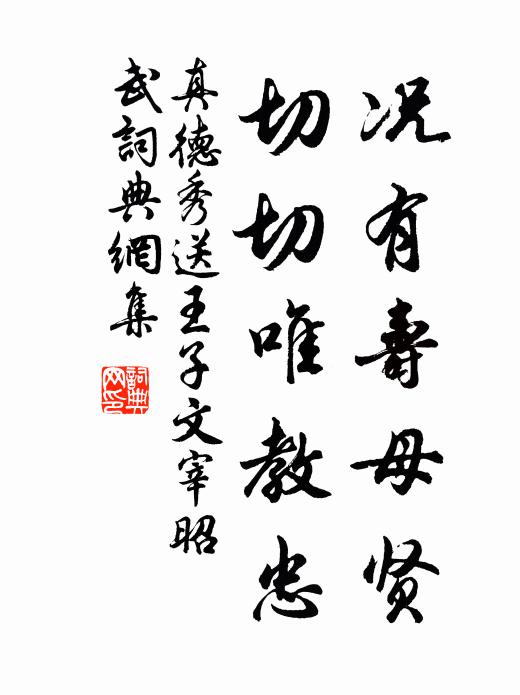 况有壽母贤
切切唯教忠
真德秀送王子文宰昭
武詞典網集
詞典网印